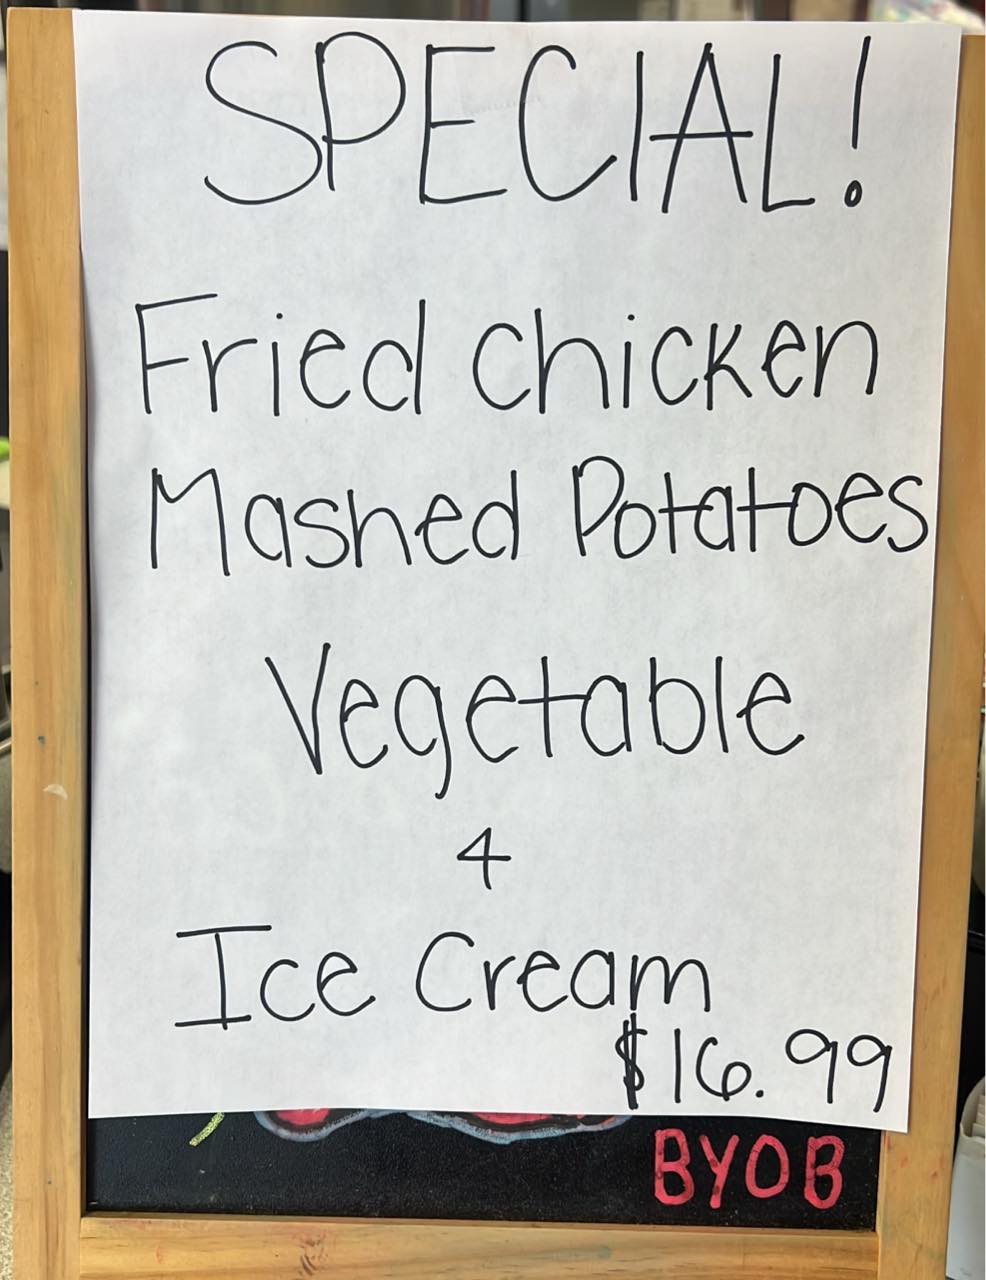 SPECIAL!
Fried Chicken
Mashed Potatoes
Vegetable
+
Ice Cream
$16.99
BYOB